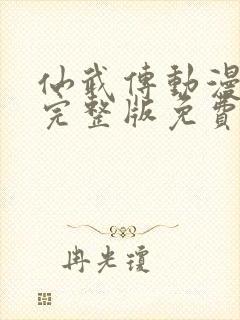 仙武傳動漫
完整版免費
冉光瓊